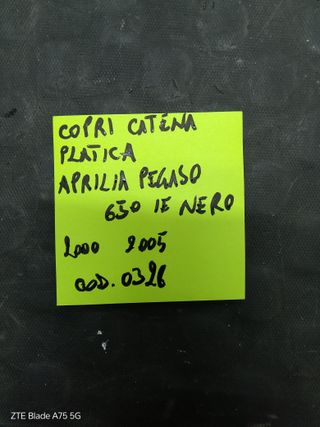 COPRI CATENA
PLATICA
APRILIA PEGASO
650 IE NERO
2000 2005
COD. 0326
ZTE Blade A75 5G